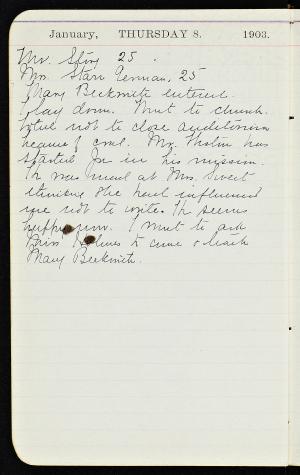 January, THURSDAY 8. 1903.
Mr. Story 25.
Mrs. Starr 25
Mary Beckwith entered.
lay down. Went to church.
Voted not to close auditorium
because of coal. Mr. has
started in his mission.
He was mad at Mrs. Sweet
thinking she had influenced
me not to write. He seems
now. I went to ask
Miss Holmes to come & teach
Mary Beckwith.